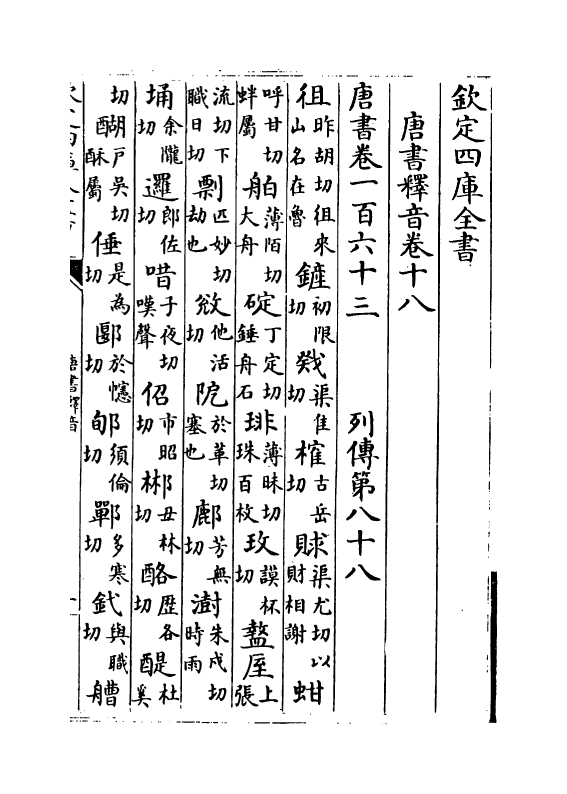 欽定四庫全書
唐書釋音卷十八
唐書卷一百六十三　列傳第八十八
徂昨胡切徂來山名在魯 鏟初限切 戣渠隹切 榷古岳切 賕渠尤切以財相謝 蚶
呼甘切蚌屬 舶薄陌切大舟 碇丁定切錘舟石 琲薄昧切珠百枚 玫謨杯切 盩厔上張
流切下職日切 剽匹妙切劫也 敓他活切 阨於革切塞也 鄜芳無切 澍朱戍切時雨
埇余隴切 邏郎佐切 唶子夜切嘆聲 佋市昭切 郴丑林切 酪歴各切 醍杜奚
切 醐戶吳切酥屬 倕是為切 郾於幰切 郇須倫切 鄲多寒切 釴與職切 艚
唐書釋音